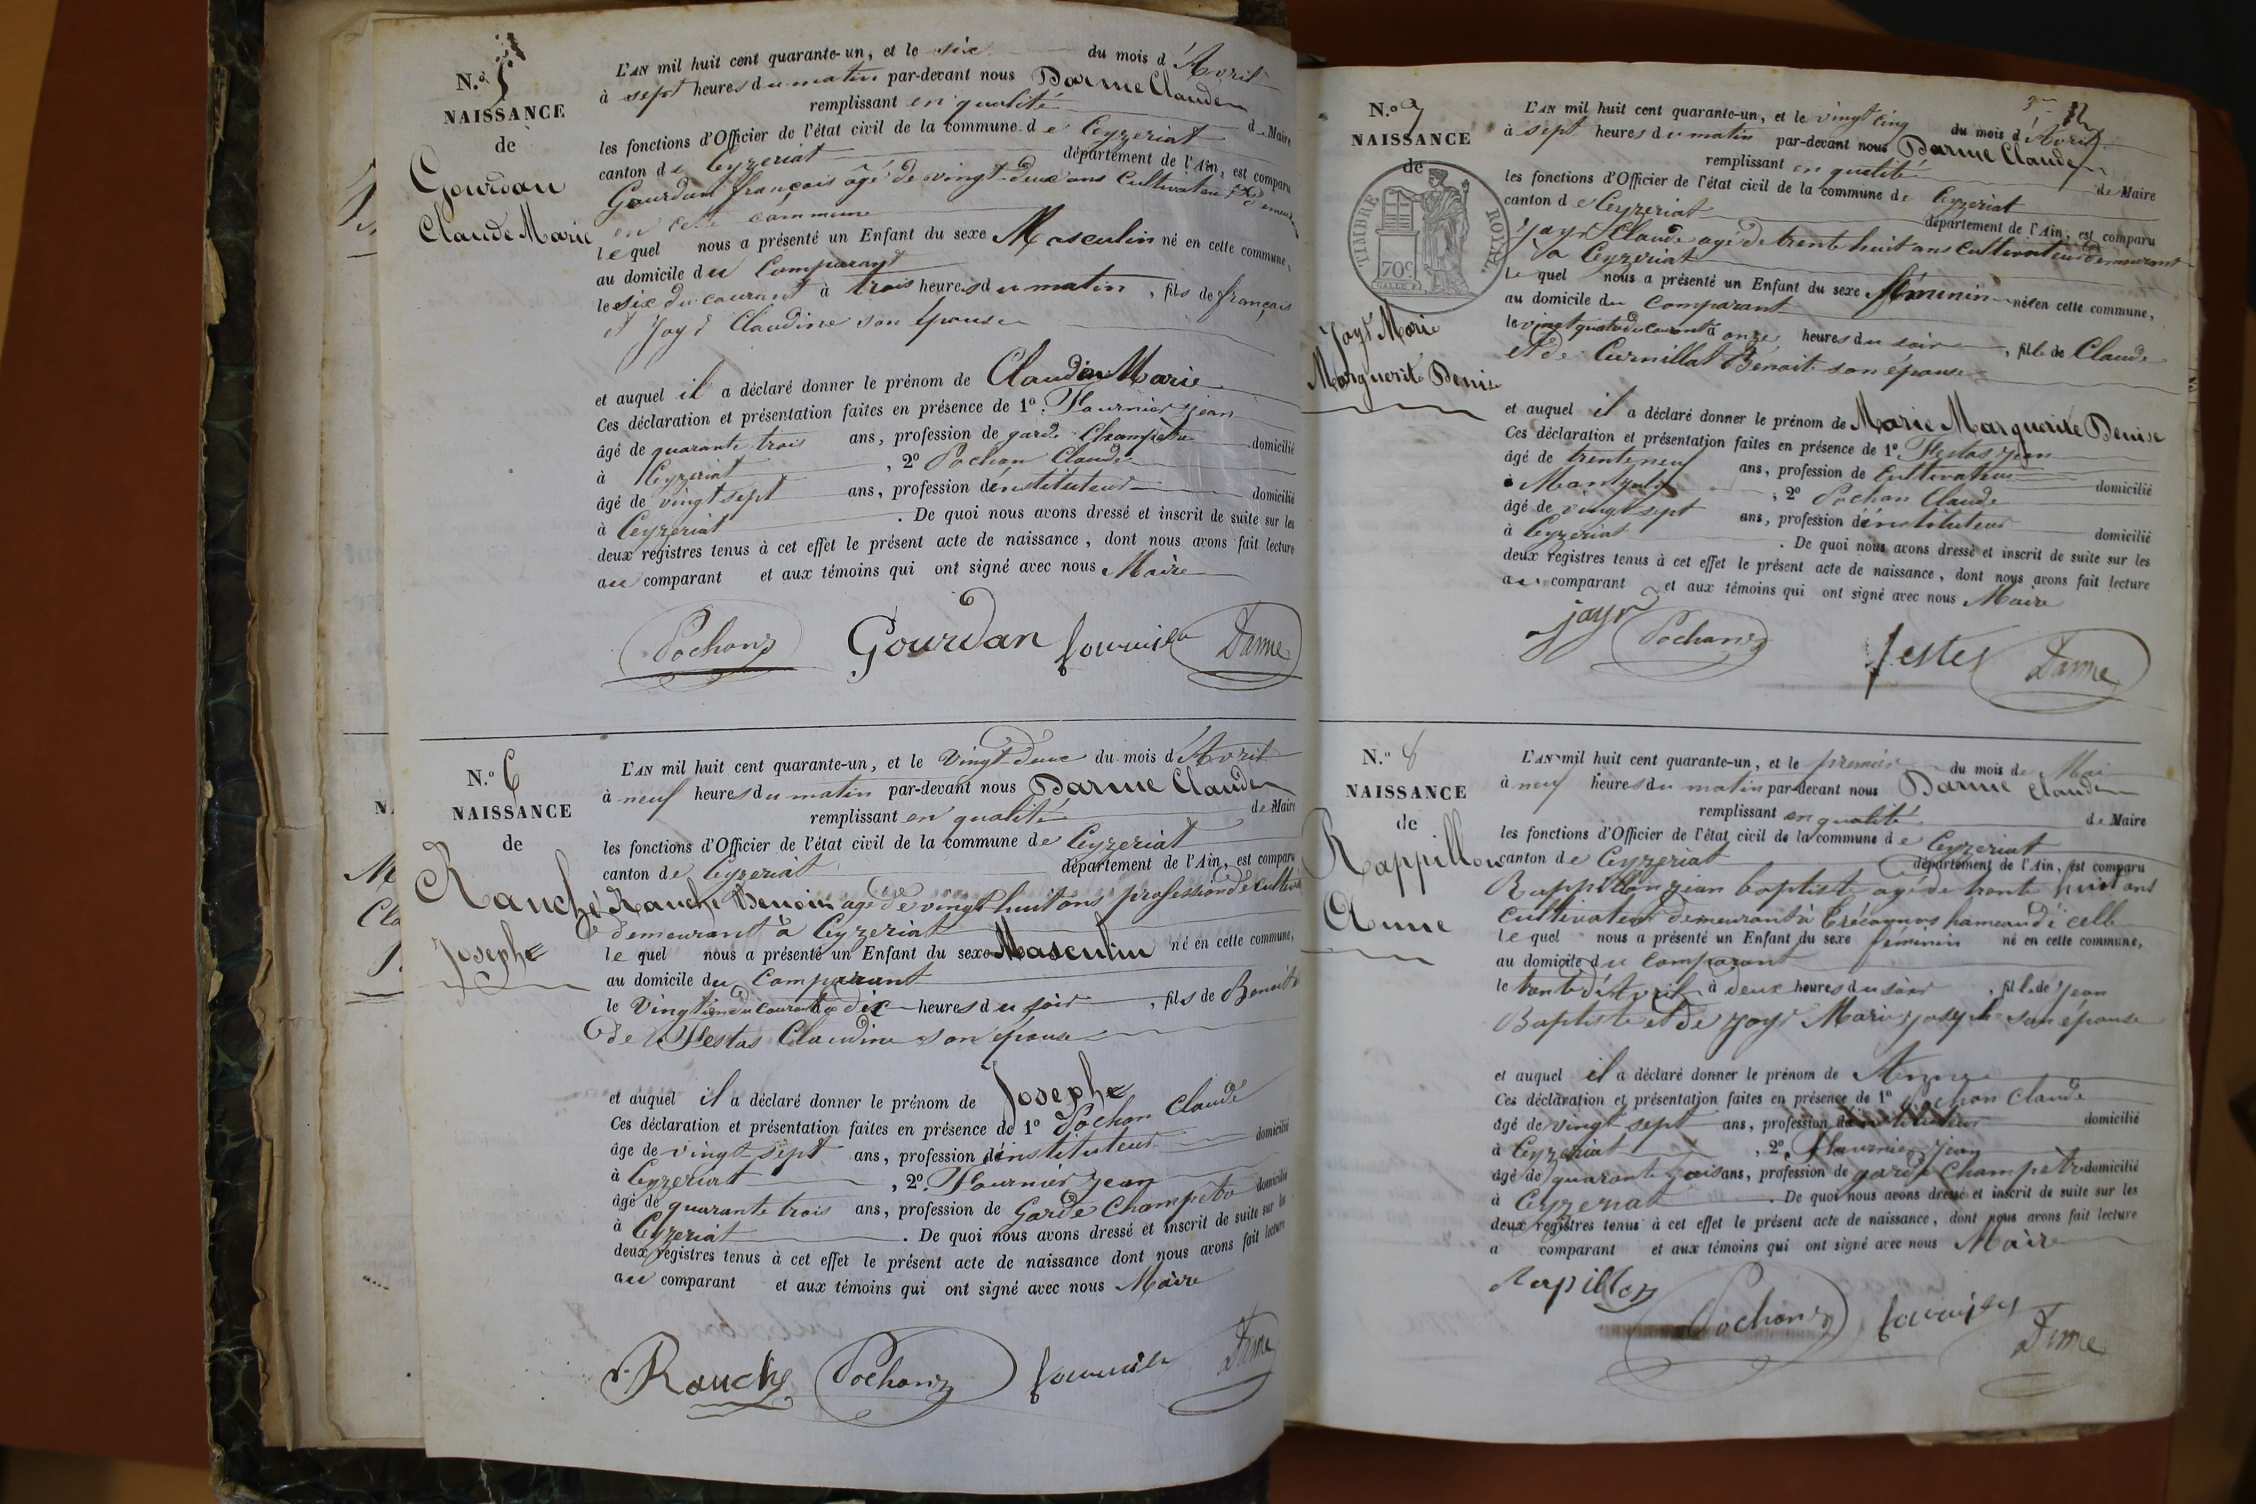 N.º 5
NAISSANCE
de
Gourdan
Claude Marie
L'AN mil huit cent quarante-un, et le six du mois d'Avril
à sept heures du matin par-devant nous Darme Claude
remplissant en qualité de Maire
les fonctions d'Officier de l'état civil de la commune de Ceyzeriat
canton de Ceyzeriat département de l'Ain, est comparu
Gourdan françois âgé de vingt-deux ans Cultivateur
en cette commune
lequel nous a présenté un Enfant du sexe Masculin né en cette commune,
au domicile du Comparant
le six du courant à trois heures du matin, fils de françois
et Claudine son épouse
et auquel il a déclaré donner le prénom de Claude Marie
Ces déclaration et présentation faites en présence de 1º. Fournier jean
âgé de quarante trois ans, profession de garde Champetre domicilié
à Ceyzeriat, 2º Pochon Claude
âgé de vingt sept ans, profession d'instituteur domicilié
à Ceyzeriat. De quoi nous avons dressé et inscrit de suite sur les
deux registres tenus à cet effet le présent acte de naissance, dont nous avons fait lecture
au comparant et aux témoins qui ont signé avec nous Maire
Pochon Gourdan fournier Darme
N.º 6
NAISSANCE
de
Rauche
Josephe
L'AN mil huit cent quarante-un, et le Vingt-deux du mois d'Avril
à neuf heures du matin par-devant nous Darme Claude
remplissant en qualité de Maire
les fonctions d'Officier de l'état civil de la commune de Ceyzeriat
canton de Ceyzeriat département de l'Ain, est comparu
Rauche Benoit agé de vingt huit ans profession de
demeurant à Ceyzeriat
lequel nous a présenté un Enfant du sexe Masculin né en cette commune,
au domicile du Comparant
le du courant à dix heures du soir, fils de Benoit
de Festas Claudine son épouse
et auquel il a déclaré donner le prénom de Josephe
Ces déclaration et présentation faites en présence de 1º Pochon Claude
âge de vingt sept ans, profession d'instituteur domicilié
à Ceyzeriat, 2º. Fournier jean
âgé de quarante trois ans, profession de Garde Champetre domicilié
à Ceyzeriat. De quoi nous avons dressé et inscrit de suite sur les
deux registres tenus à cet effet le présent acte de naissance dont nous avons fait lecture
au comparant et aux témoins qui ont signé avec nous Maire
Rauche Pochon fournier Darme
N.º 7
NAISSANCE
de
TIMBRE ROYAL
70c
Jayr Marie
Marguerite Denise
L'AN mil huit cent quarante-un, et le vingt cinq du mois d'Avril
à sept heures du matin par-devant nous Darme Claude
remplissant en qualité de Maire
les fonctions d'Officier de l'état civil de la commune de Ceyzeriat
canton de Ceyzeriat département de l'Ain, est comparu
Jayr Claude agé de trente huit ans Cultivateur demeurant
à Ceyzeriat
Lequel nous a présenté un Enfant du sexe féminin née en cette commune,
au domicile du comparant
le vingt quatre du courant à onze heures du soir, fille de Claude
et de Curnillat Benoite son épouse
et auquel il a déclaré donner le prénom de Marie Marguerite Denise
Ces déclaration et présentation faites en présence de 1º Festas jean
âgé de trente neuf ans, profession de Cultivateur domicilié
à, 2º Pochon Claude
âgé de vingt sept ans, profession d'instituteur domicilié
à Ceyzeriat. De quoi nous avons dressé et inscrit de suite sur les
deux registres tenus à cet effet le présent acte de naissance, dont nous avons fait lecture
au comparant et aux témoins qui ont signé avec nous Maire
jayr Pochon festas Darme
N.º 8
NAISSANCE
de
Rappillon
Anne
L'AN mil huit cent quarante-un, et le premier du mois de Mai
à neuf heures du matin par-devant nous Darme Claude
remplissant en qualité de Maire
les fonctions d'Officier de l'état civil de la commune de Ceyzeriat
canton de Ceyzeriat département de l'Ain, est comparu
Rappillon jean baptiste agé de trente huit ans
cultivateur demeurant à hameau de
Lequel nous a présenté un Enfant du sexe féminin né en cette commune,
au domicile du Comparant
le trente d'Avril à deux heures du soir, fille de jean
Baptiste et de jayr Marie josephe son épouse
et auquel il a déclaré donner le prénom de Anne
Ces déclaration et présentation faites en présence de 1º Pochon Claude
âgé de vingt sept ans, profession d'instituteur domicilié
à Ceyzeriat, 2º. Fournier jean
âgé de quarante trois ans, profession de garde Champetre domicilié
à Ceyzeriat. De quoi nous avons dressé et inscrit de suite sur les
deux registres tenus à cet effet le présent acte de naissance, dont nous avons fait lecture
a comparant et aux témoins qui ont signé avec nous Maire
Rapillon Pochon fournier Darme